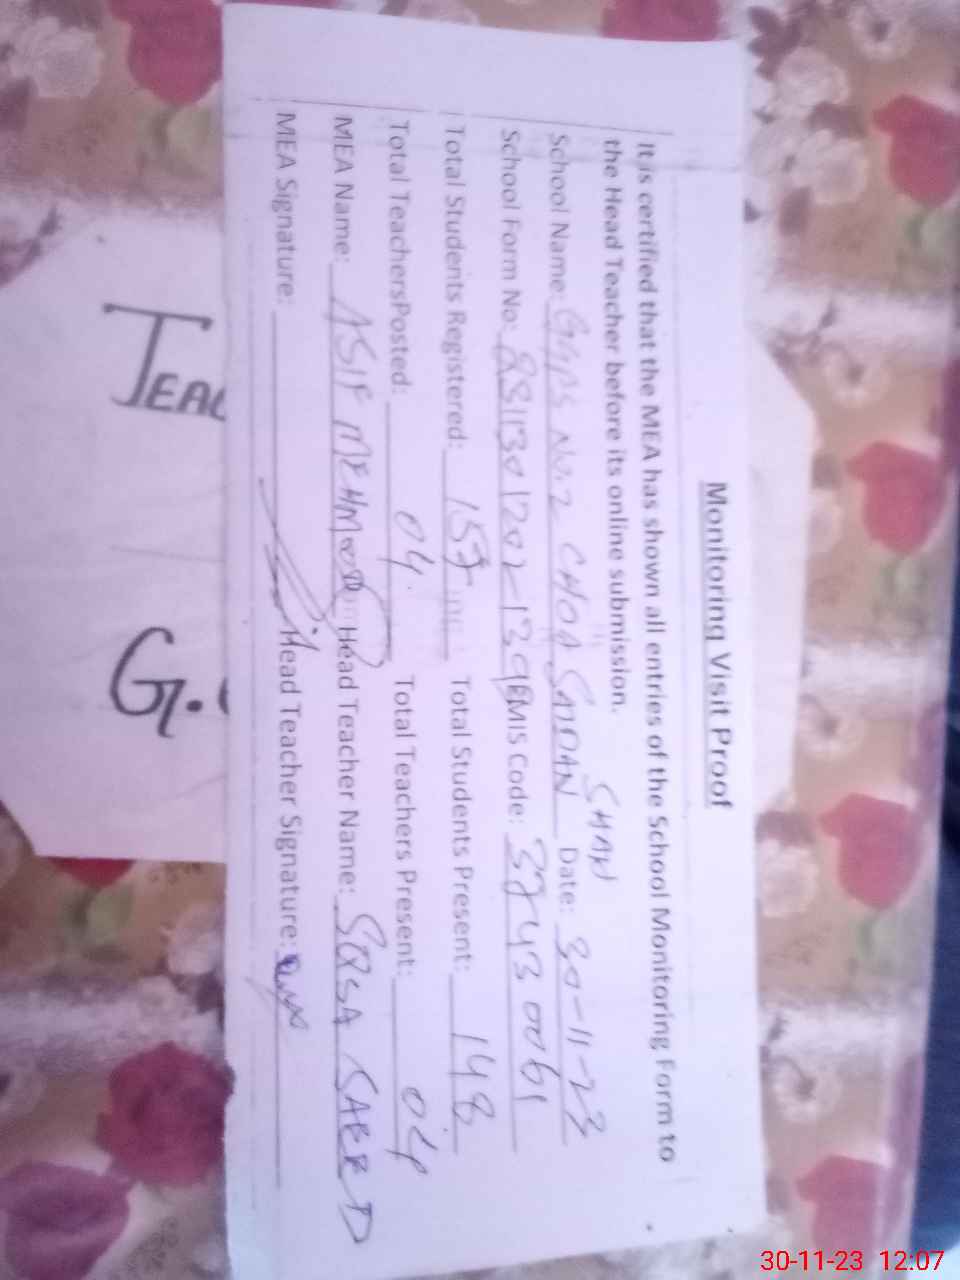 Monitoring Visit Proof
It is certified that the MEA has shown all entries of the School Monitoring Form to
the Head Teacher before its online submission.
SHAH
School Name: GGPS No.2 CHOA SAIDAN Date: 30-11-23
School Form No: EMIS Code: 37430061
Total Students Registered: 157 Total Students Present: 148
Total TeachersPosted: 04 Total Teachers Present: 04
MEA Name: ASIF MEHMOOD Head Teacher Name:
MEA Signature: Head Teacher Signature:
TEAC
G.
30-11-23 12:07